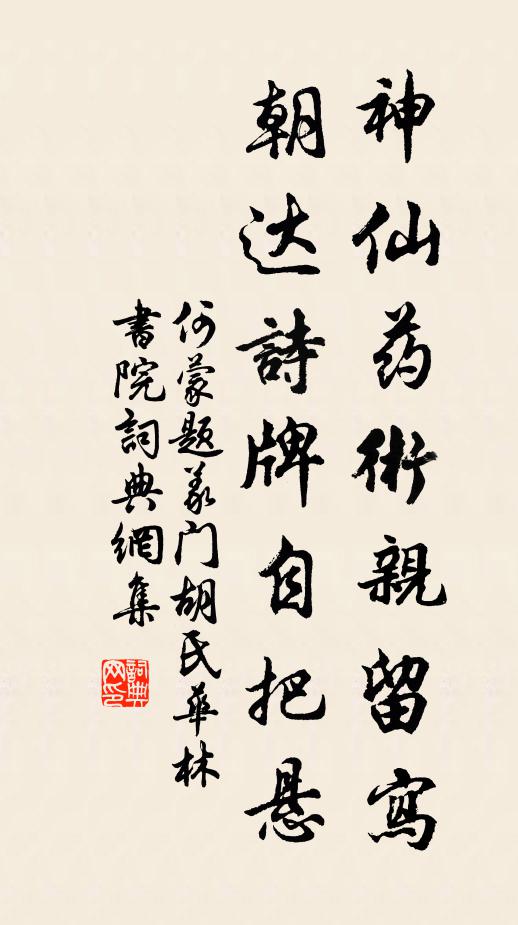 神仙药術親留寫
朝达詩牌自把悬
何蒙题义门胡氏華林
書院詞典網集
詞典网印